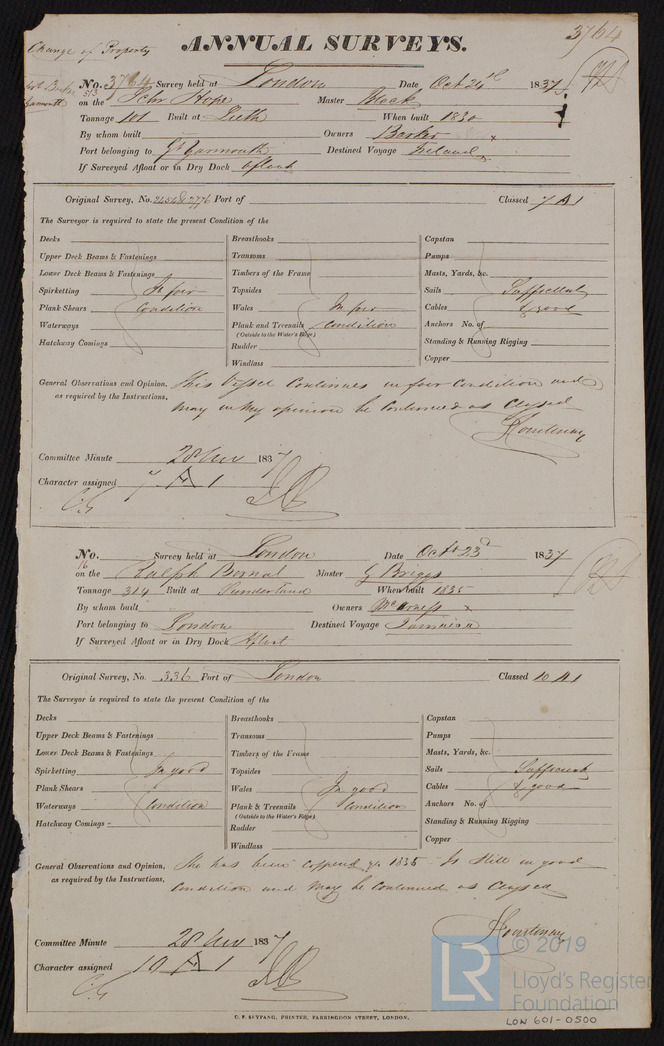 Change of Property
3764
ANNUAL SURVEYS.
No. 3764 Survey held at London Date Oct 24th 1837
513
on the Schr Hope Master Black
Yarmouth
Tonnage 101 Built at Leith When built 1830
By whom built Owners Barker x
Port belonging to Gt Yarmouth Destined Voyage Ireland x
If Surveyed Afloat or in Dry Dock Afloat
Original Survey, No. 2454 & 2776 Port of Classed 7 A 1
The Surveyor is required to state the present Condition of the
Decks Breasthooks Capstan
Upper Deck Beams & Fastenings Transoms Pumps
Lower Deck Beams & Fastenings Timbers of the Frame Masts, Yards, &c.
Spirketting In fair Topsides Sails Sufficient
Plank Shears Condition Wales In fair Cables & good
Waterways Plank and Treenails Condition Anchors No. of
(Outside to the Water's Edge)
Hatchway Comings Rudder Standing & Running Rigging
Windlass Copper
General Observations and Opinion, This Vessel Continues in fair Condition and
as required by the Instructions. may in my opinion be Continued as Classed
Courtenay
Committee Minute 28 Nov 1837
Character assigned 7 A 1
No. Survey held at London Date Octr 23d 1837
16
on the Ralph Bernal Master G Briggs
Tonnage 314 Built at Sunderland When built 1835
By whom built Owners x
Port belonging to London Destined Voyage Jamaica
If Surveyed Afloat or in Dry Dock Afloat
Original Survey, No. 336 Port of London Classed 10 A 1
The Surveyor is required to state the present Condition of the
Decks Breasthooks Capstan
Upper Deck Beams & Fastenings Transoms Pumps
Lower Deck Beams & Fastenings Timbers of the Frame Masts, Yards, &c.
Spirketting In good Topsides Sails Sufficient
Plank Shears Wales In good Cables & good
Waterways Condition Plank & Treenails Condition Anchors No. of
(Outside to the Water's Edge)
Hatchway Comings Rudder Standing & Running Rigging
Windlass Copper
General Observations and Opinion, She has been Coppered 1835 Is Still in good
as required by the Instructions. Condition and may be Continued as Classed
Courtenay
Committee Minute 28 Nov 1837
Character assigned 10 A 1
LR © 2019
Lloyd's Register
Foundation
C. F. SEYFANG, PRINTER, FARRINGDON STREET, LONDON.
LON 601-0500